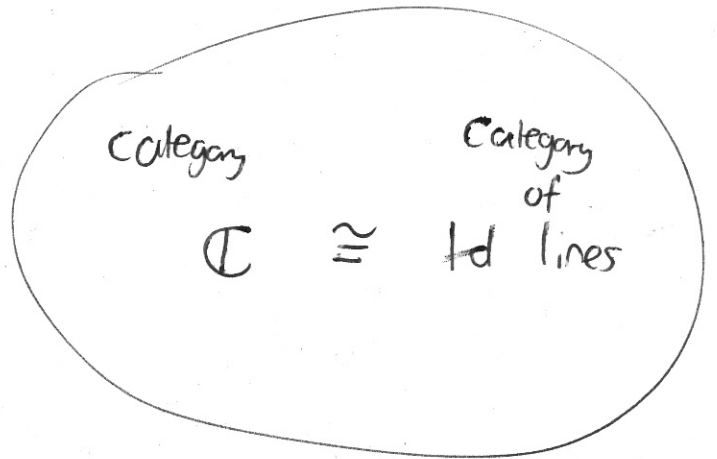 Category
Category
of
ℂ ≅ 1-d lines